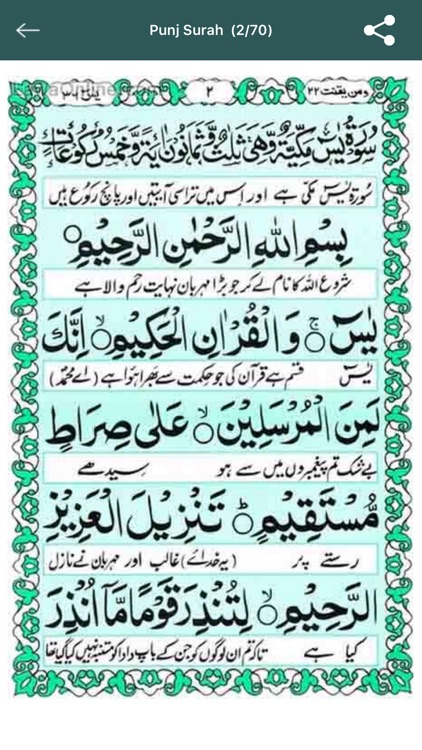 Punj Surah (2/70)
ومن یقنت ۲۲
۲
یٰسٓ ۳۶
سُوْرَةُ يٰسٓ مَكِّيَّةٌ وَّهِيَ ثَلٰثٌ وَّثَمَانُوْنَ اٰيَةً وَّخَمْسُ رُكُوْعَاتٍ
سُورۃ یٰسٓ مکی ہے اور اس میں تراسی آیتیں اور پانچ رکوع ہیں
بِسْمِ اللّٰهِ الرَّحْمٰنِ الرَّحِيْمِ
شروع اللہ کا نام لے کر جو بڑا مہربان نہایت رحم والا ہے
يٰسٓ ۚ وَالْقُرْاٰنِ الْحَكِيْمِ ۙ اِنَّكَ
یٰسٓ قسم ہے قرآن کی جو حکمت سے بھرا ہوا ہے (اے محمدؐ)
لَمِنَ الْمُرْسَلِيْنَ ۙ عَلٰى صِرَاطٍ
بےشک تم پیغمبروں میں سے ہو سیدھے
مُّسْتَقِيْمٍ ؕ تَنْزِيْلَ الْعَزِيْزِ
رستے پر (یہ خدائے) غالب اور مہربان نے نازل
الرَّحِيْمِ ۙ لِتُنْذِرَ قَوْمًا مَّاۤ اُنْذِرَ
کیا ہے تاکہ تم ان لوگوں کو جن کے باپ دادا کو متنبہ نہیں کیا گیا تھا